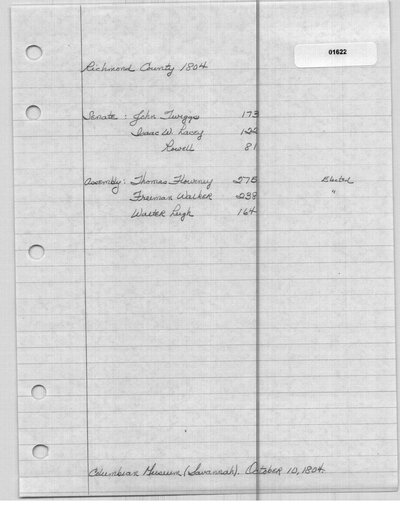 01622
Richmond County 1804
Senate: John Twiggs 173
Isaac W. Lacey 122
Powell 81
Assembly: Thomas Flourney 275 Elected
Freeman Walker 238 "
Walter Leigh 164
Columbian Museum (Savannah). October 10, 1804.